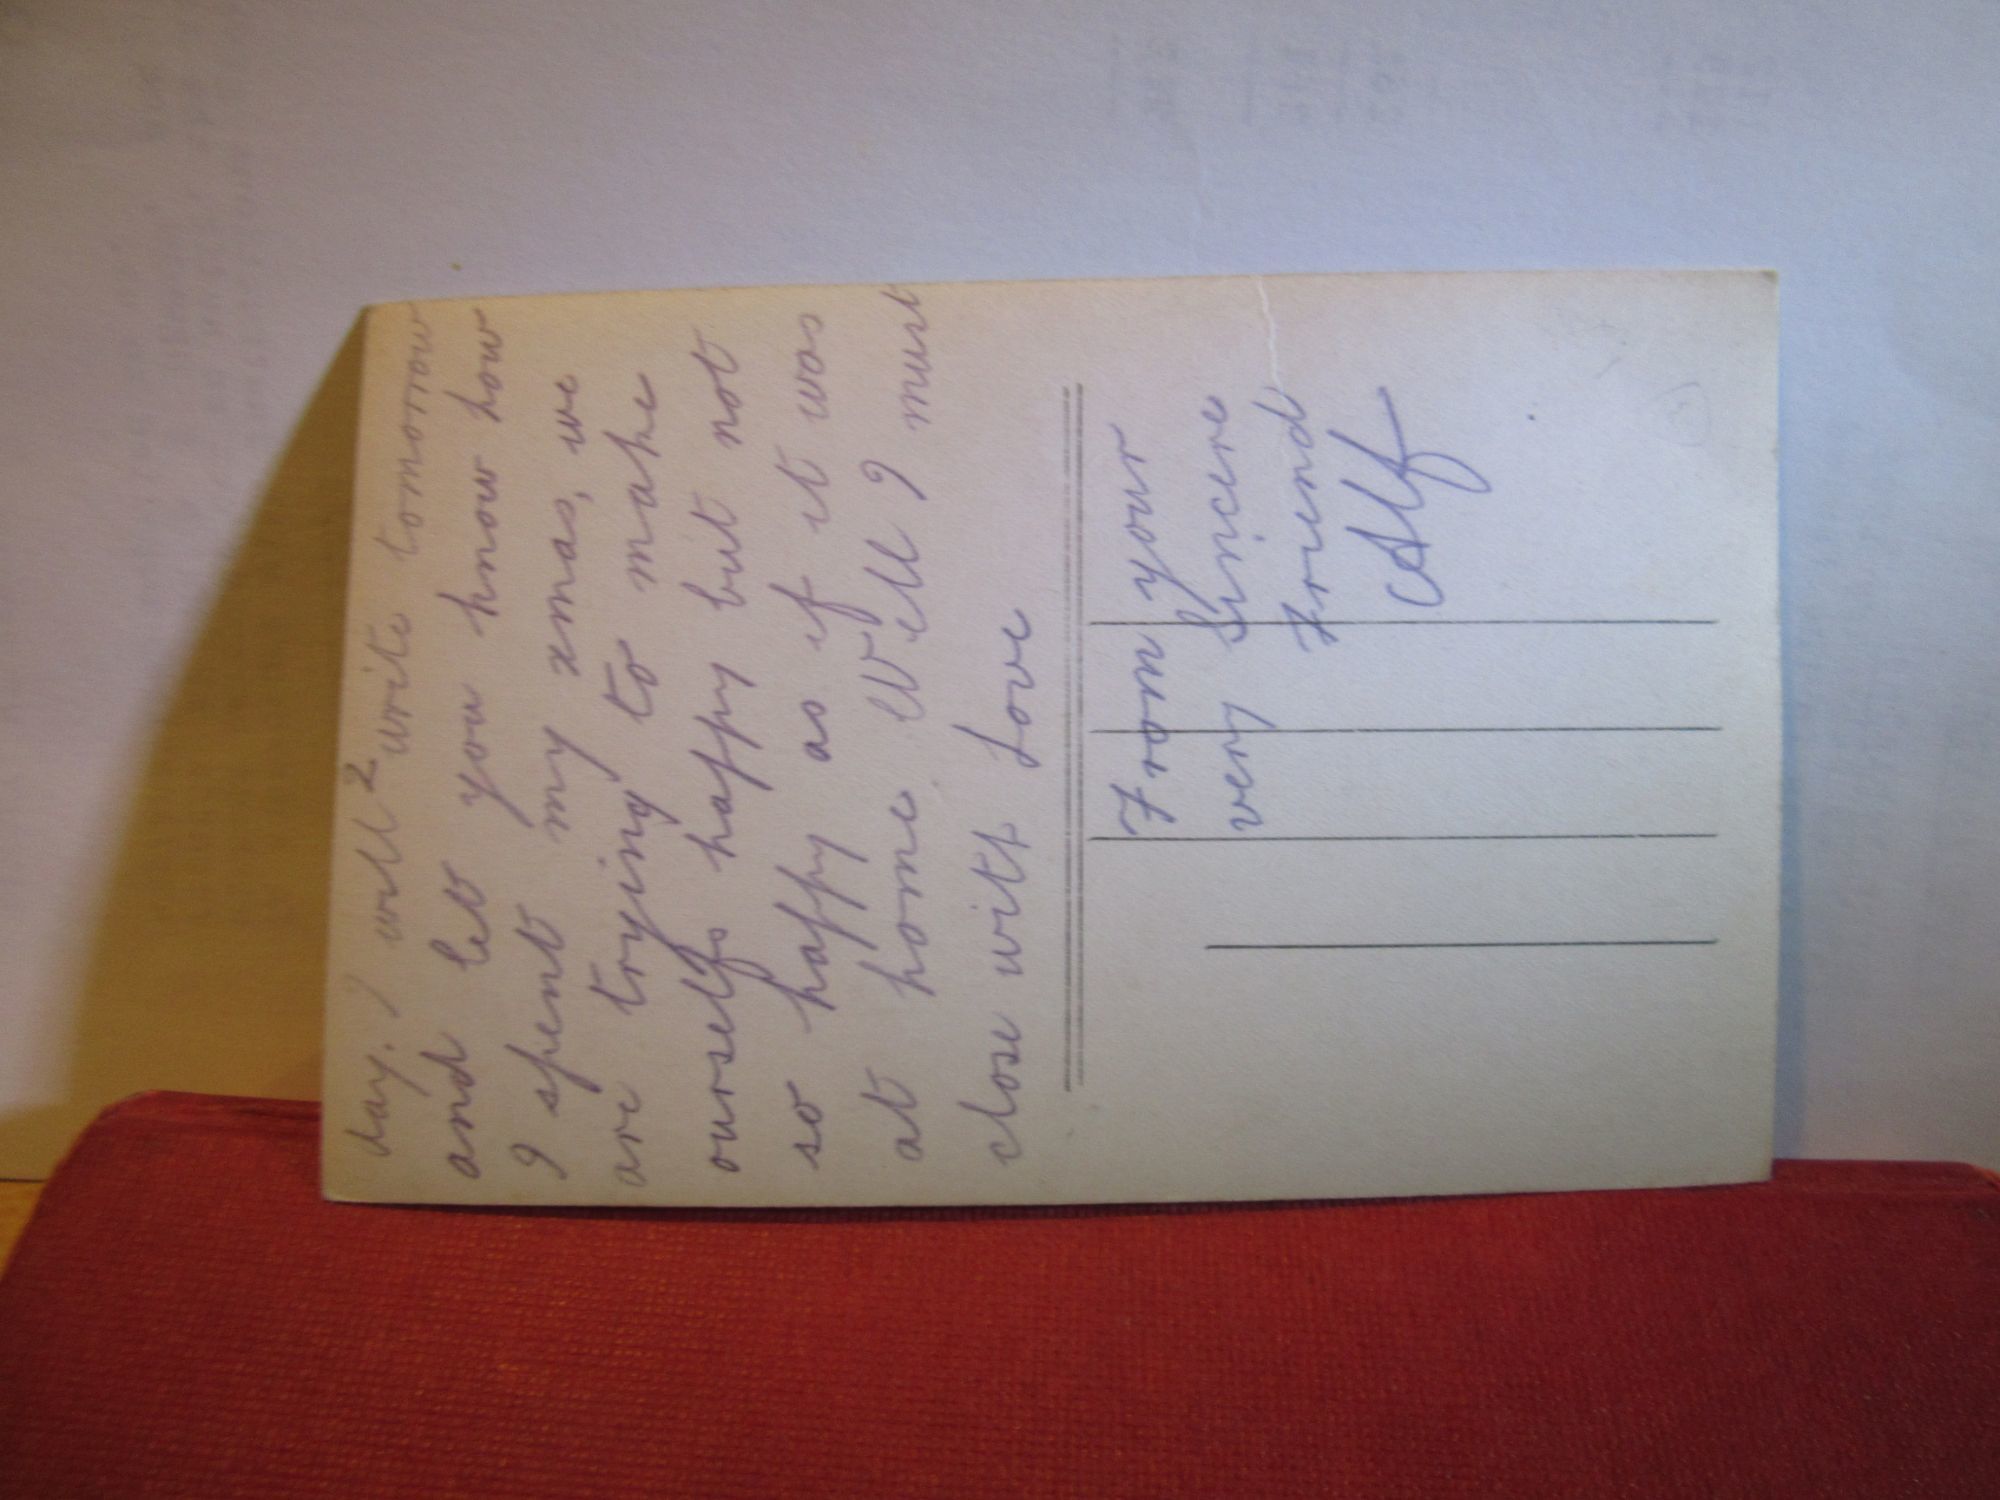 2
day. I will write tomorrow
and let you know how
I spent my xmas, we
are trying to make
ourselfs happy but not
so happy as if it was
at home Well I must
close with Love
From your
very Sincere
Friend
Alf